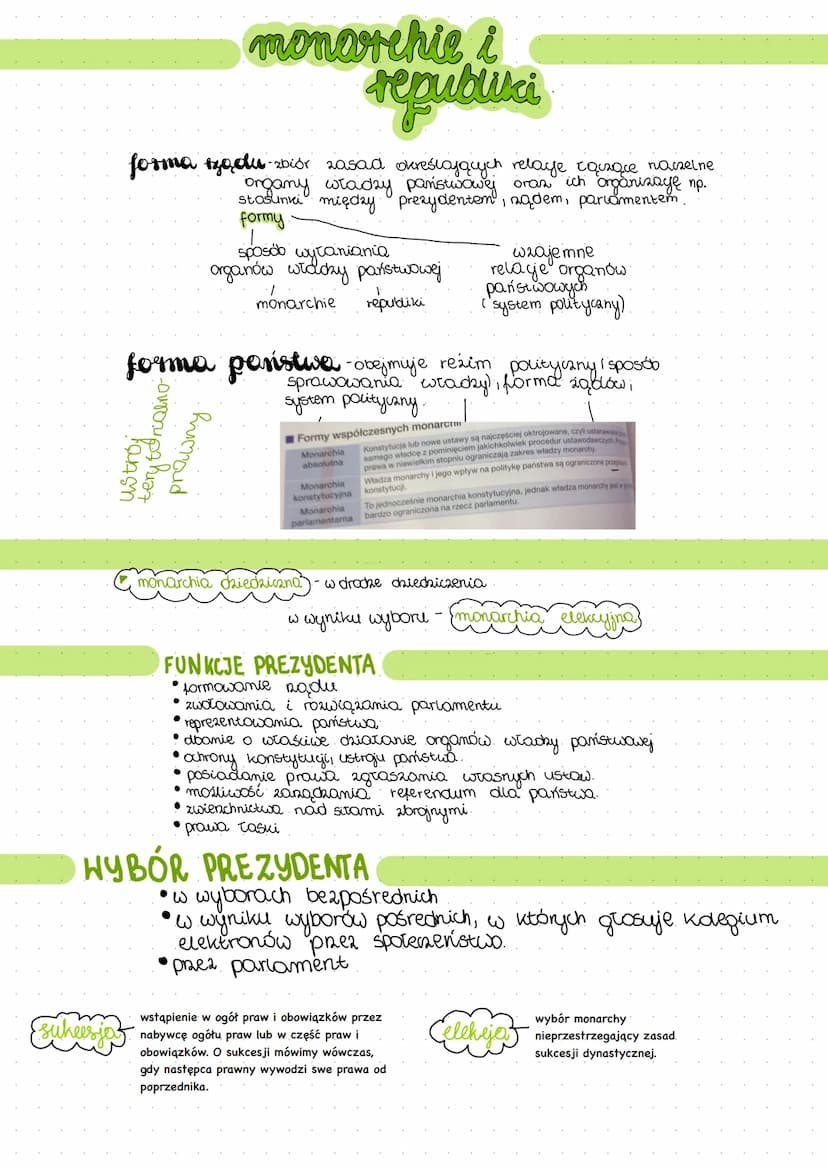 monarchie i
republiki
forma rządu - zbiór zasad określających relacje łączące naczelne
organy władzy państwowej oraz ich organizację np.
stosunki między prezydentem, rządem, parlamentem.
formy
sposób wyłaniania
organów władzy państwowej
monarchie republiki
wzajemne
relacje organów
państwowych
(system polityczny)
forma państwa - obejmuje reżim polityczny (sposób
sprawowania władzy), forma rządów,
system polityczny.
ustrój
terytorialno-
prawny
Formy współczesnych monarchii
Monarchia
absolutna
Konstytucja lub nowe ustawy są najczęściej oktrojowane, czyli
samego władcę z pominięciem jakichkolwiek procedur ustawodawczych.
prawa w niewielkim stopniu ograniczają zakres władzy monarchy.
Monarchia
konstytucyjna
Władza monarchy i jego wpływ na politykę państwa są ograniczone
konstytucji.
Monarchia
parlamentarna
To jednocześnie monarchia konstytucyjna, jednak władza monarchy jest
bardzo ograniczona na rzecz parlamentu.
monarchia dziedziczna - w drodze dziedziczenia
w wyniku wyboru - monarchia elekcyjna
FUNKCJE PREZYDENTA
• formowanie rządu
• zwoływania i rozwiązania parlamentu
• reprezentowania państwa
• dbanie o właściwe działanie organów władzy państwowej
• ochrony konstytucji, ustroju państwa.
• posiadanie prawa zgłaszania własnych ustaw.
• możliwość zarządzania referendum dla państwa.
• zwierzchnictwa nad siłami zbrojnymi
• prawa łaski
WYBÓR PREZYDENTA
• w wyborach bezpośrednich
• w wyniku wyborów pośrednich, w których głosuje kolegium
elektronów przez społeczeństwo.
• przez parlament
sukcesja
wstąpienie w ogół praw i obowiązków przez
nabywcę ogółu praw lub w część praw i
obowiązków. O sukcesji mówimy wówczas,
gdy następca prawny wywodzi swe prawa od
poprzednika.
elekcja
wybór monarchy
nieprzestrzegający zasad
sukcesji dynastycznej.